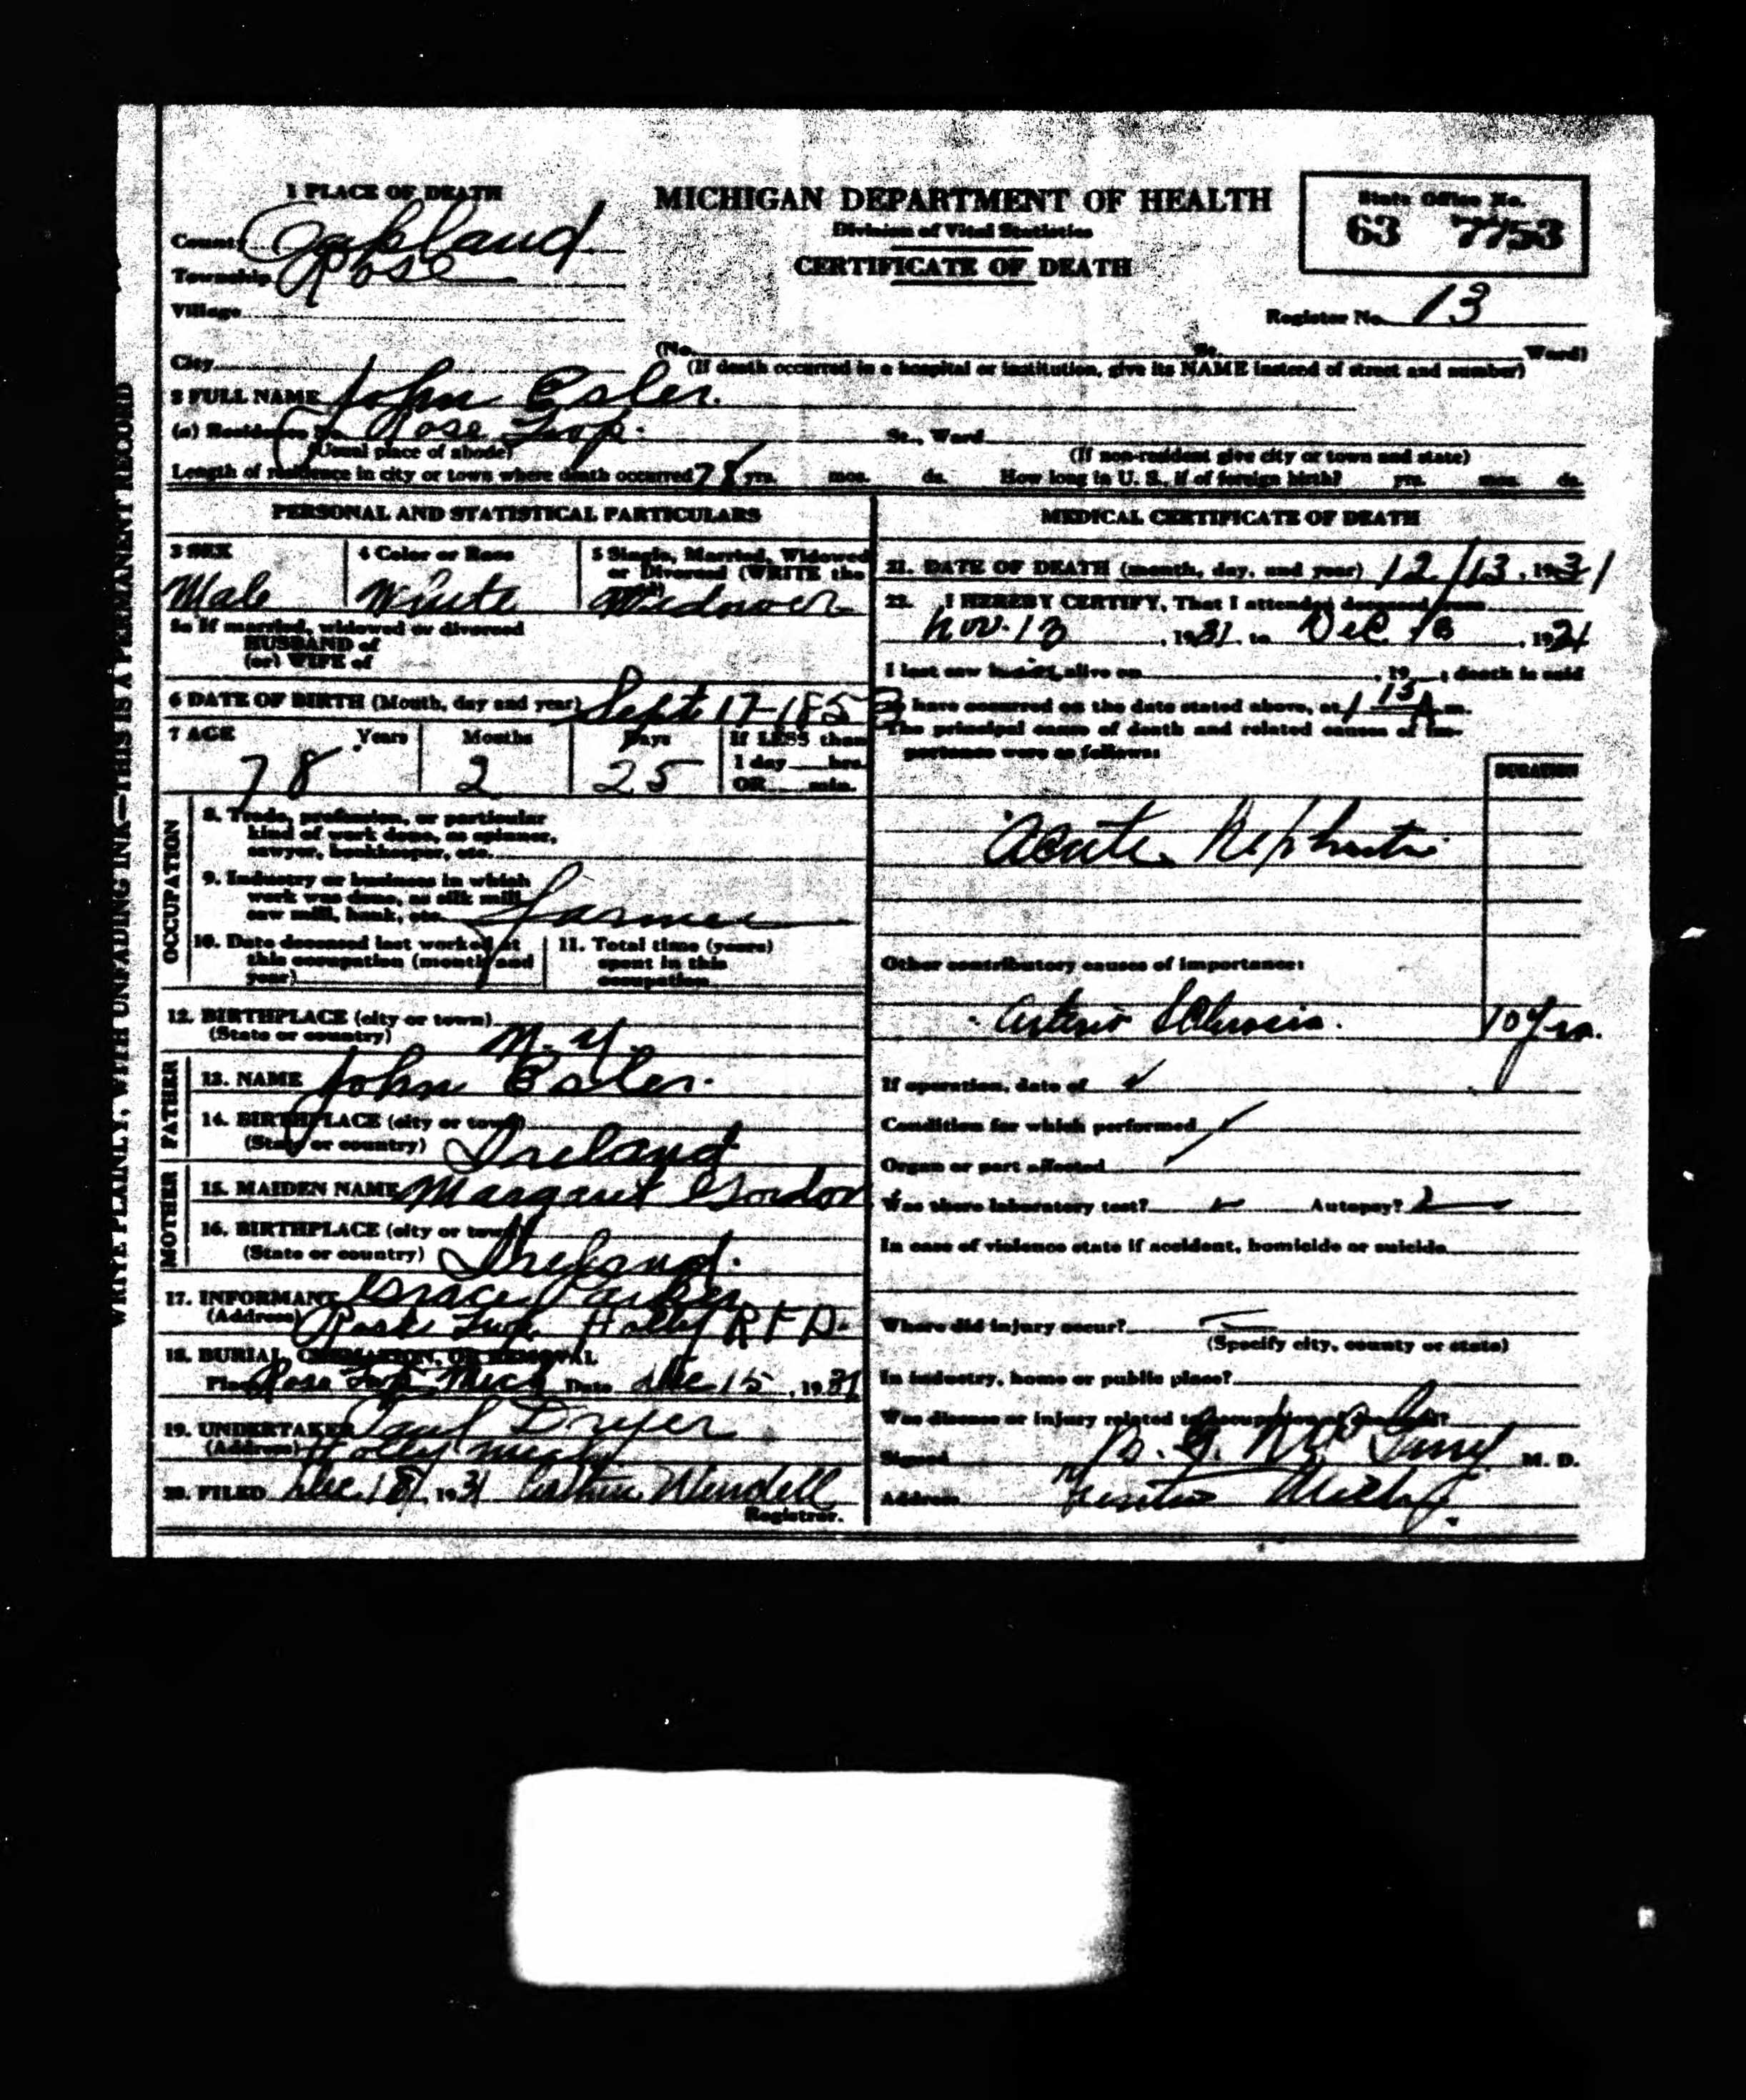 1 PLACE OF DEATH
MICHIGAN DEPARTMENT OF HEALTH
Division of Vital Statistics
CERTIFICATE OF DEATH
State Office No.
63 7753
County Oakland
Township Rose
Village
Register No. 13
City
(No. St. Ward)
(If death occurred in a hospital or institution, give its NAME instead of street and number)
2 FULL NAME John Esler.
(a) Residence No. Rose Twp.
St., Ward
(Usual place of abode)
(If non-resident give city or town and state)
Length of residence in city or town where death occurred 78 yrs. mos. ds. How long in U. S., if of foreign birth? yrs. mos. ds.
PERSONAL AND STATISTICAL PARTICULARS
3 SEX
Male
4 Color or Race
White
5 Single, Married, Widowed
or Divorced (WRITE the
Widower
5a If married, widowed or divorced
HUSBAND of
(or) WIFE of
6 DATE OF BIRTH (Month, day and year) Sept 17-1853
7 AGE Years Months Days If LESS than
1 day hrs.
78 2 25 OR min.
OCCUPATION
8. Trade, profession, or particular
kind of work done, as spinner,
sawyer, bookkeeper, etc.
9. Industry or business in which
work was done, as silk mill,
saw mill, bank, etc. Farmer
10. Date deceased last worked at
this occupation (month and
year)
11. Total time (years)
spent in this
occupation
12. BIRTHPLACE (city or town)
(State or country) N. Y.
FATHER
13. NAME John Esler.
14. BIRTHPLACE (city or town)
(State or country) Ireland
MOTHER
15. MAIDEN NAME Margaret Gordon
16. BIRTHPLACE (city or town)
(State or country) Ireland.
17. INFORMANT Grace Parker
(Address) Rose Twp. Holly R F D.
18. BURIAL, CREMATION, OR REMOVAL
Place Rose Twp Mich Date Dec 15, 1931
19. UNDERTAKER Paul Dryer
(Address) Holly Mich
20. FILED Dec. 18, 1931 Wendell
Registrar.
MEDICAL CERTIFICATE OF DEATH
21. DATE OF DEATH (month, day, and year) 12/13, 1931
22. I HEREBY CERTIFY, That I attended deceased from
Nov. 13, 1931, to Dec. 13, 1931
I last saw h alive on , 19 ; death is said
to have occurred on the date stated above, at 1 15 A m.
The principal cause of death and related causes of im-
portance were as follows:
DURATION
Acute Nephritis
Other contributory causes of importance:
Arterio Sclerosis. 10 yrs.
If operation, date of
Condition for which performed
Organ or part affected
Was there laboratory test? Autopsy?
In case of violence state if accident, homicide or suicide
Where did injury occur?
(Specify city, county or state)
In industry, home or public place?
Was disease or injury related to occupation of deceased?
Signed M. D.
Address Fenton Mich.
WRITE PLAINLY, WITH UNFADING INK—THIS IS A PERMANENT RECORD